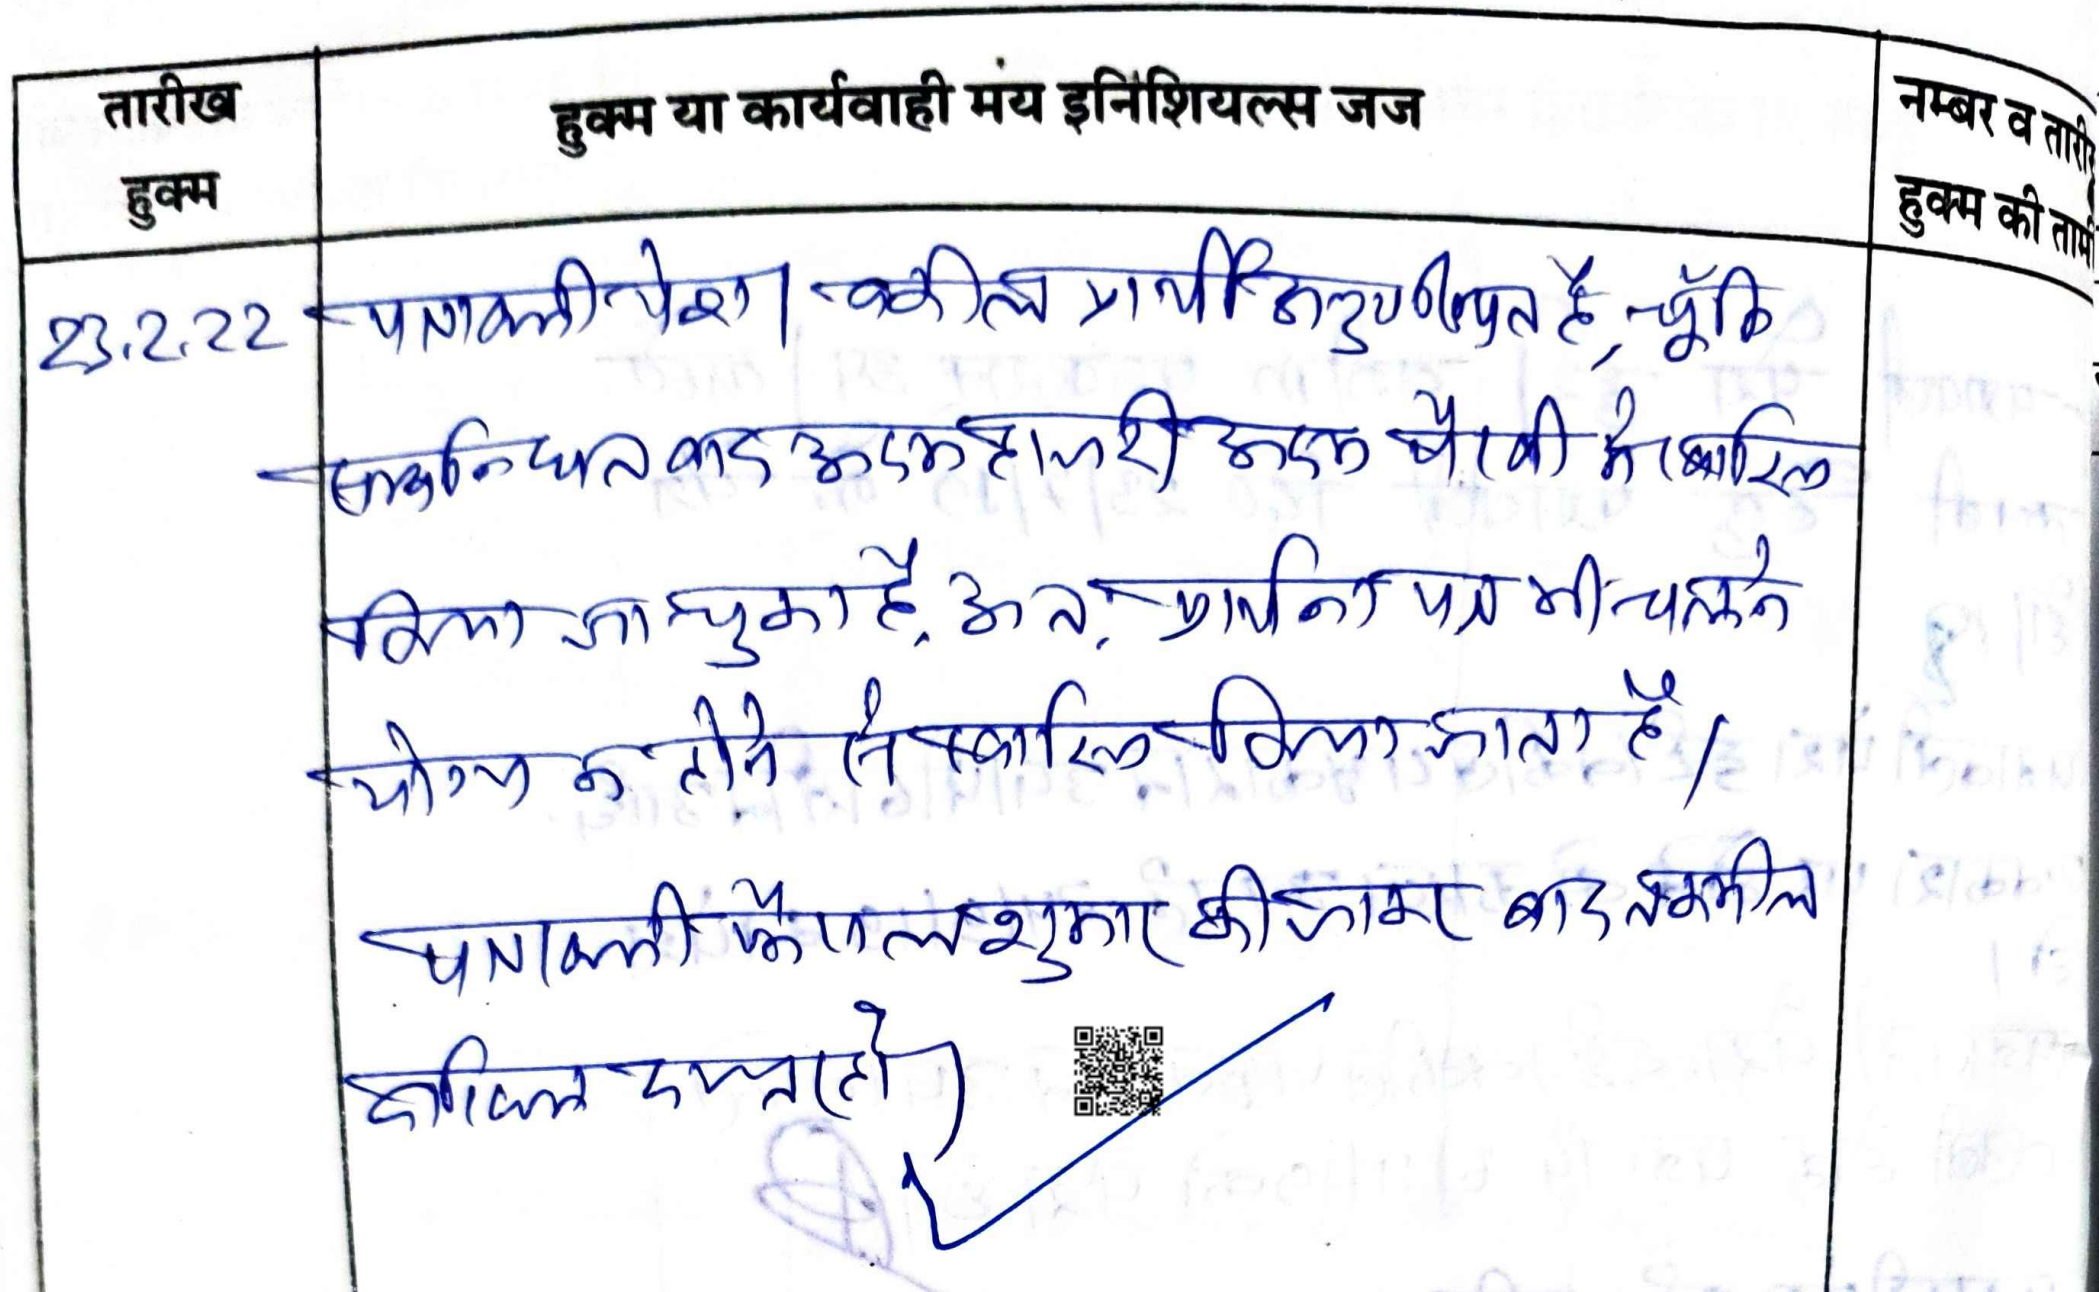 तारीख
हुक्म
हुक्म या कार्यवाही मय इनिशियल्स जज
नम्बर व तारी
हुक्म की तामी
23.2.22 पत्रावली पेश। वकील प्रार्थी अनुपस्थित है, चूँकि
वाद अदम हाजरी अदम पैरवी में खारिज
किया जा चुका है, अतः प्रार्थना पत्र भी चलने
योग्य न होने से खारिज किया जाता है।
पत्रावली फैसल शुमार की जाकर बाद तकमील
दाखिल दफ्तर हो।